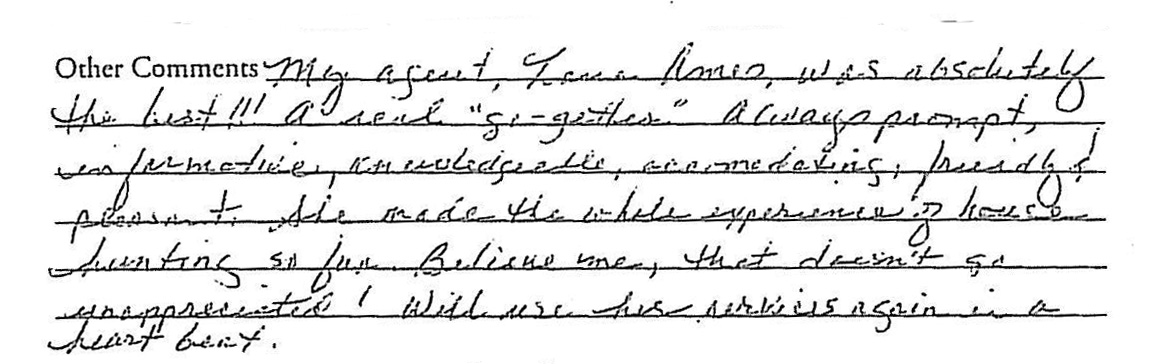 Other Comments My agent, Lana Ames, was absolutely
the best!!! A real "go-gether." Always prompt,
informative, knowledgeable, accomodating, friendly &
pleasant. She made the whole experience of house
hunting so fun. Believe me, that doesn't go
unappreciated! Will use her services again in a
heart beat.